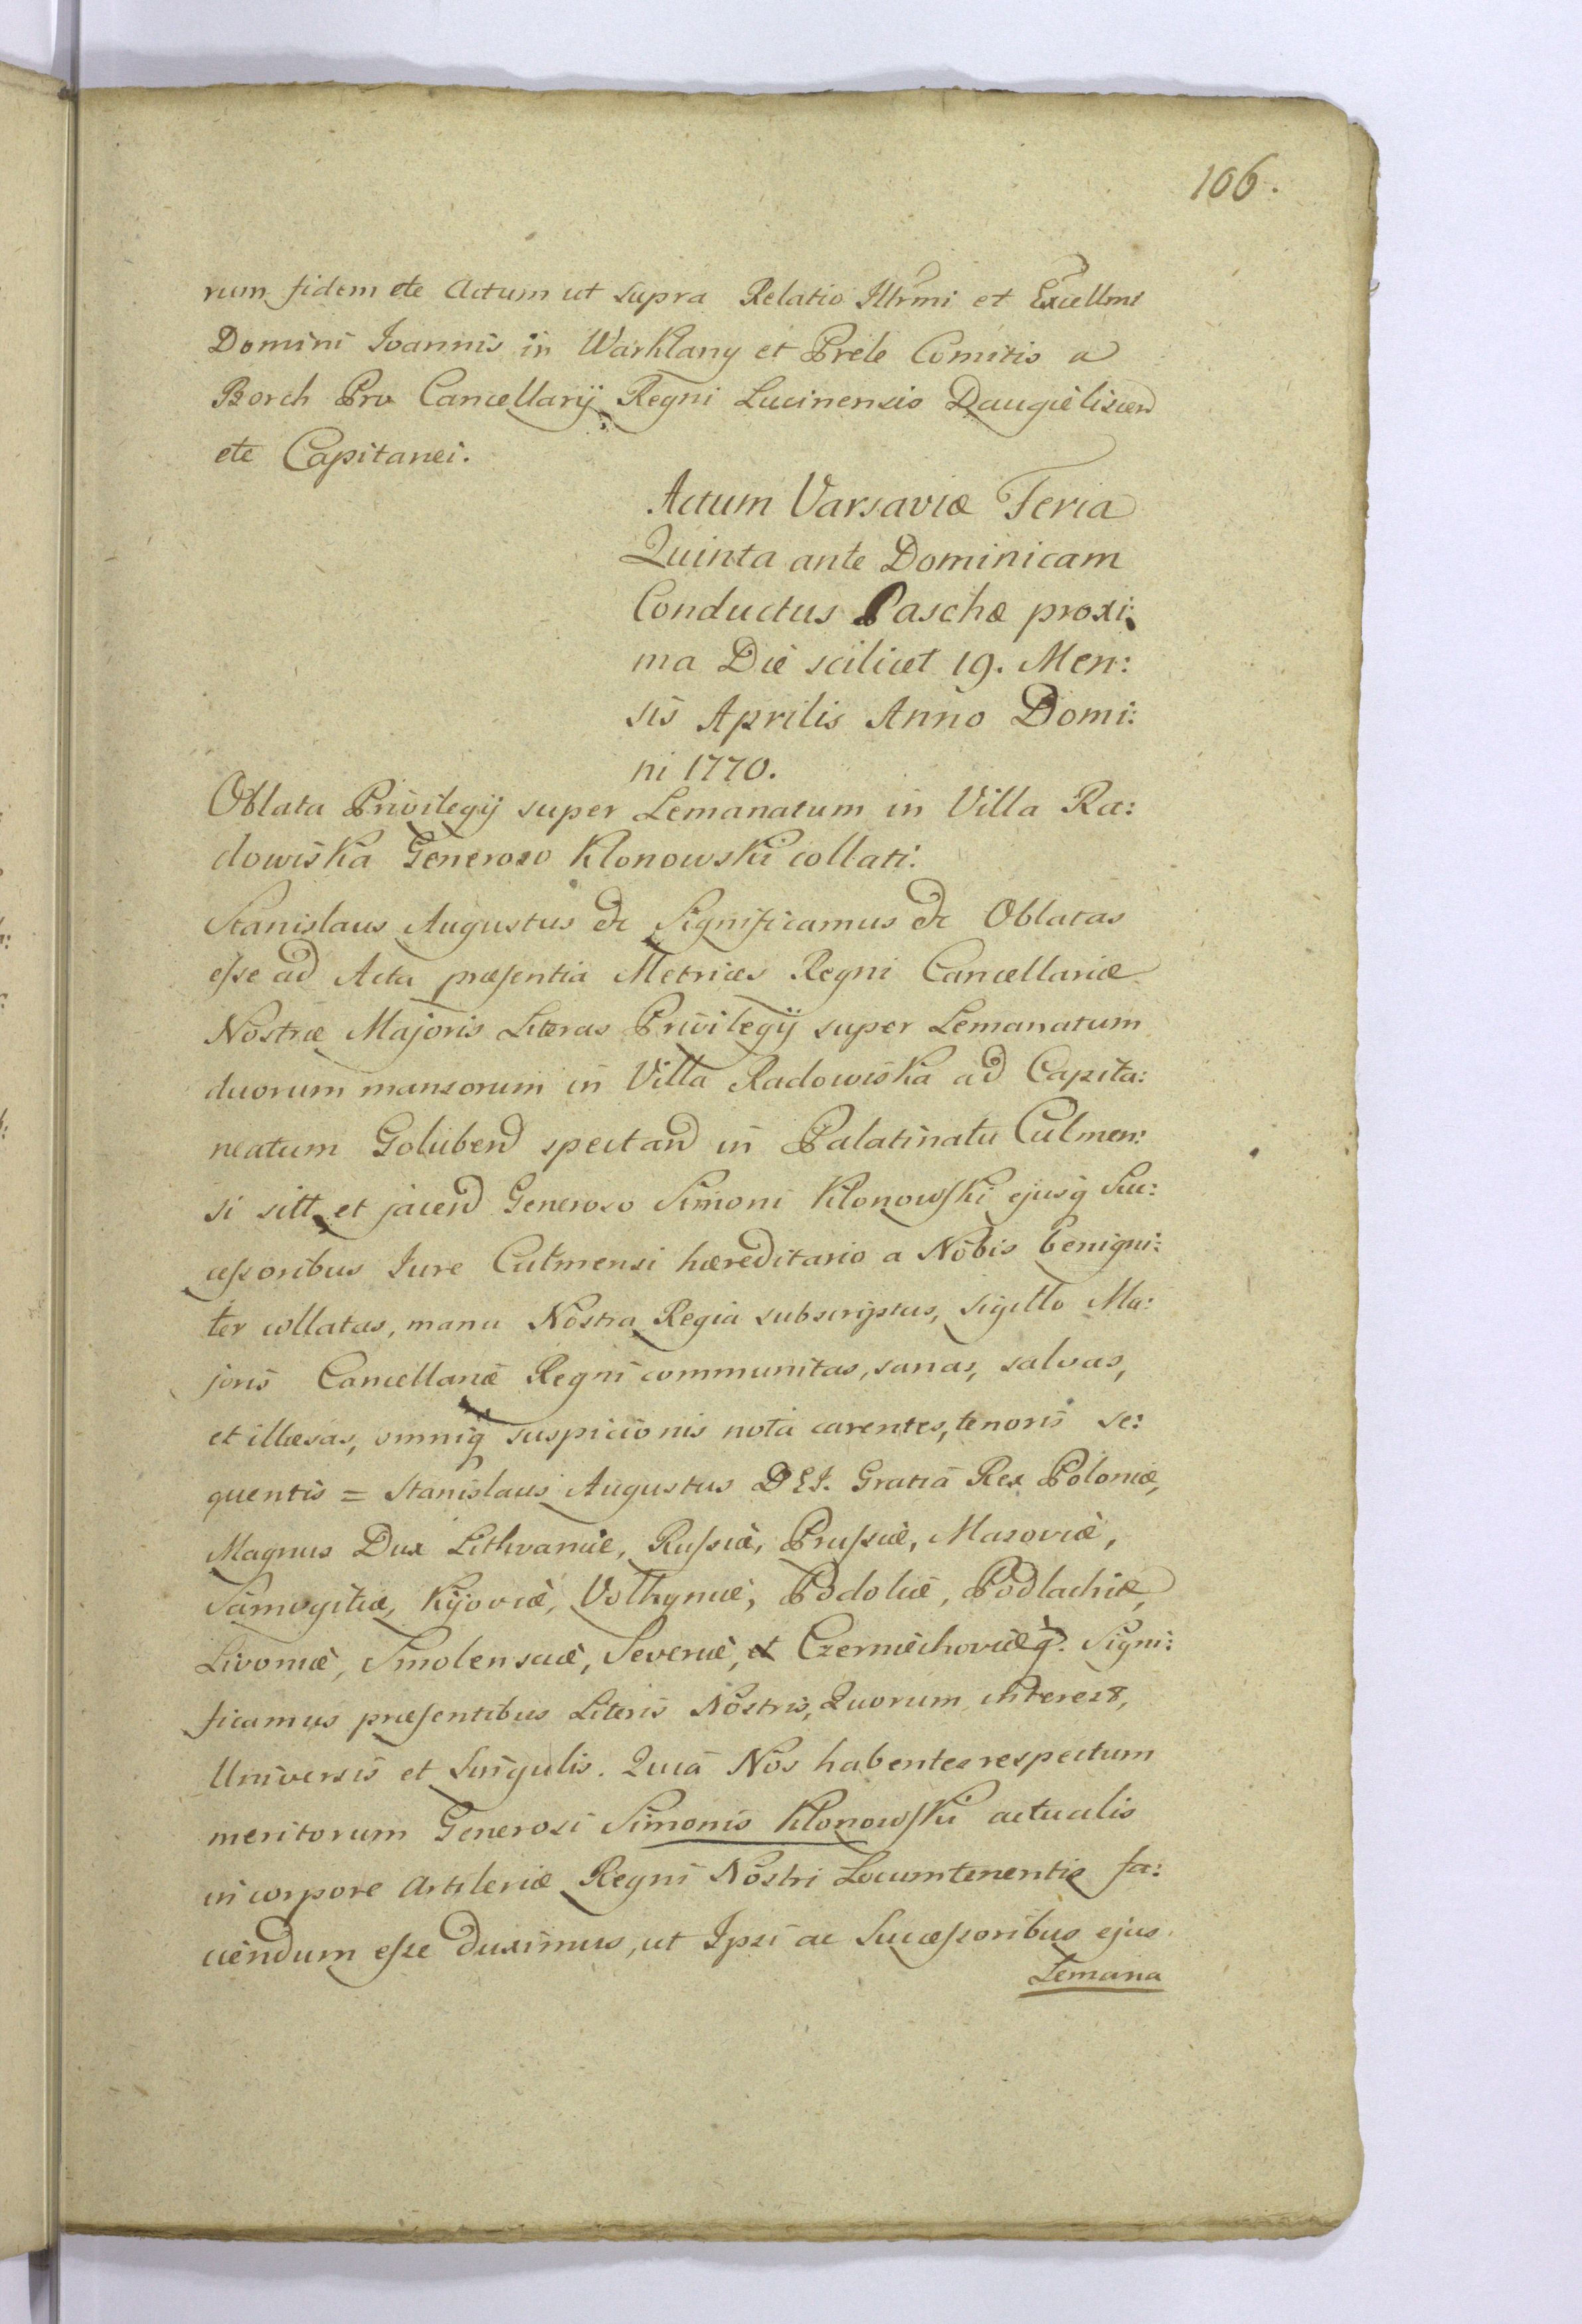 106.
rum fidem etc Actum ut supra Relatio Illrmi et Excellmi
Domini Ioannis in Warklany et Prele Comitis a
Borch Pro Cancellarij Regni Lucinensis Daugieliscen
etc Capitanei.
Actum Varsaviæ Feria
Quinta ante Dominicam
Conductus Paschæ proxi:
ma Die scilicet 19. Men:
sis Aprilis Anno Domi:
ni 1770.
Oblata Privilegij super Lemanatum in Villa Ra:
dowiska Generoso Klonowski collati.
Stanislaus Augustus etc Significamus etc Oblatas
esse ad Acta præsentia Metrices Regni Cancellariæ
Nostræ Majoris Literas Privilegij super Lemanatum
duorum mansorum in Villa Radowiska ad Capita:
neatum Golubend spectand in Palatinatu Culmen:
si sitt et jacend Generoso Simoni Klonowski ejusq Suc:
cessoribus Iure Culmensi hæreditario a Nobis benigni:
ter collatas, manu Nostra Regia subscriptas, sigillo Ma:
joris Cancellariæ Regni communitas, sanas, salvas,
et illæsas, omniq suspicionis nota carentes, tenoris se:
quentis = Stanislaus Augustus DEI. Gratiâ Rex Poloniæ,
Magnus Dux Lithvaniæ, Russiæ, Prussiæ, Mazoviæ,
Samogitiæ, Kijoviæ, Volhyniæ, Podoliæ, Podlachiæ,
Livoniæ, Smolensciæ, Severiæ, et Czerniechoviæq. Signi:
ficamus præsentibus Literis Nostris, Quorum interest,
Universis et Singulis. Quiâ Nos habentes respectum
meritorum Generosi Simonis Klonowski actualis
in corpore Artileriæ Regni Nostri Locumtenentis fa:
ciendum esse duximus, ut Ipsi ac Successoribus ejus
Lemana